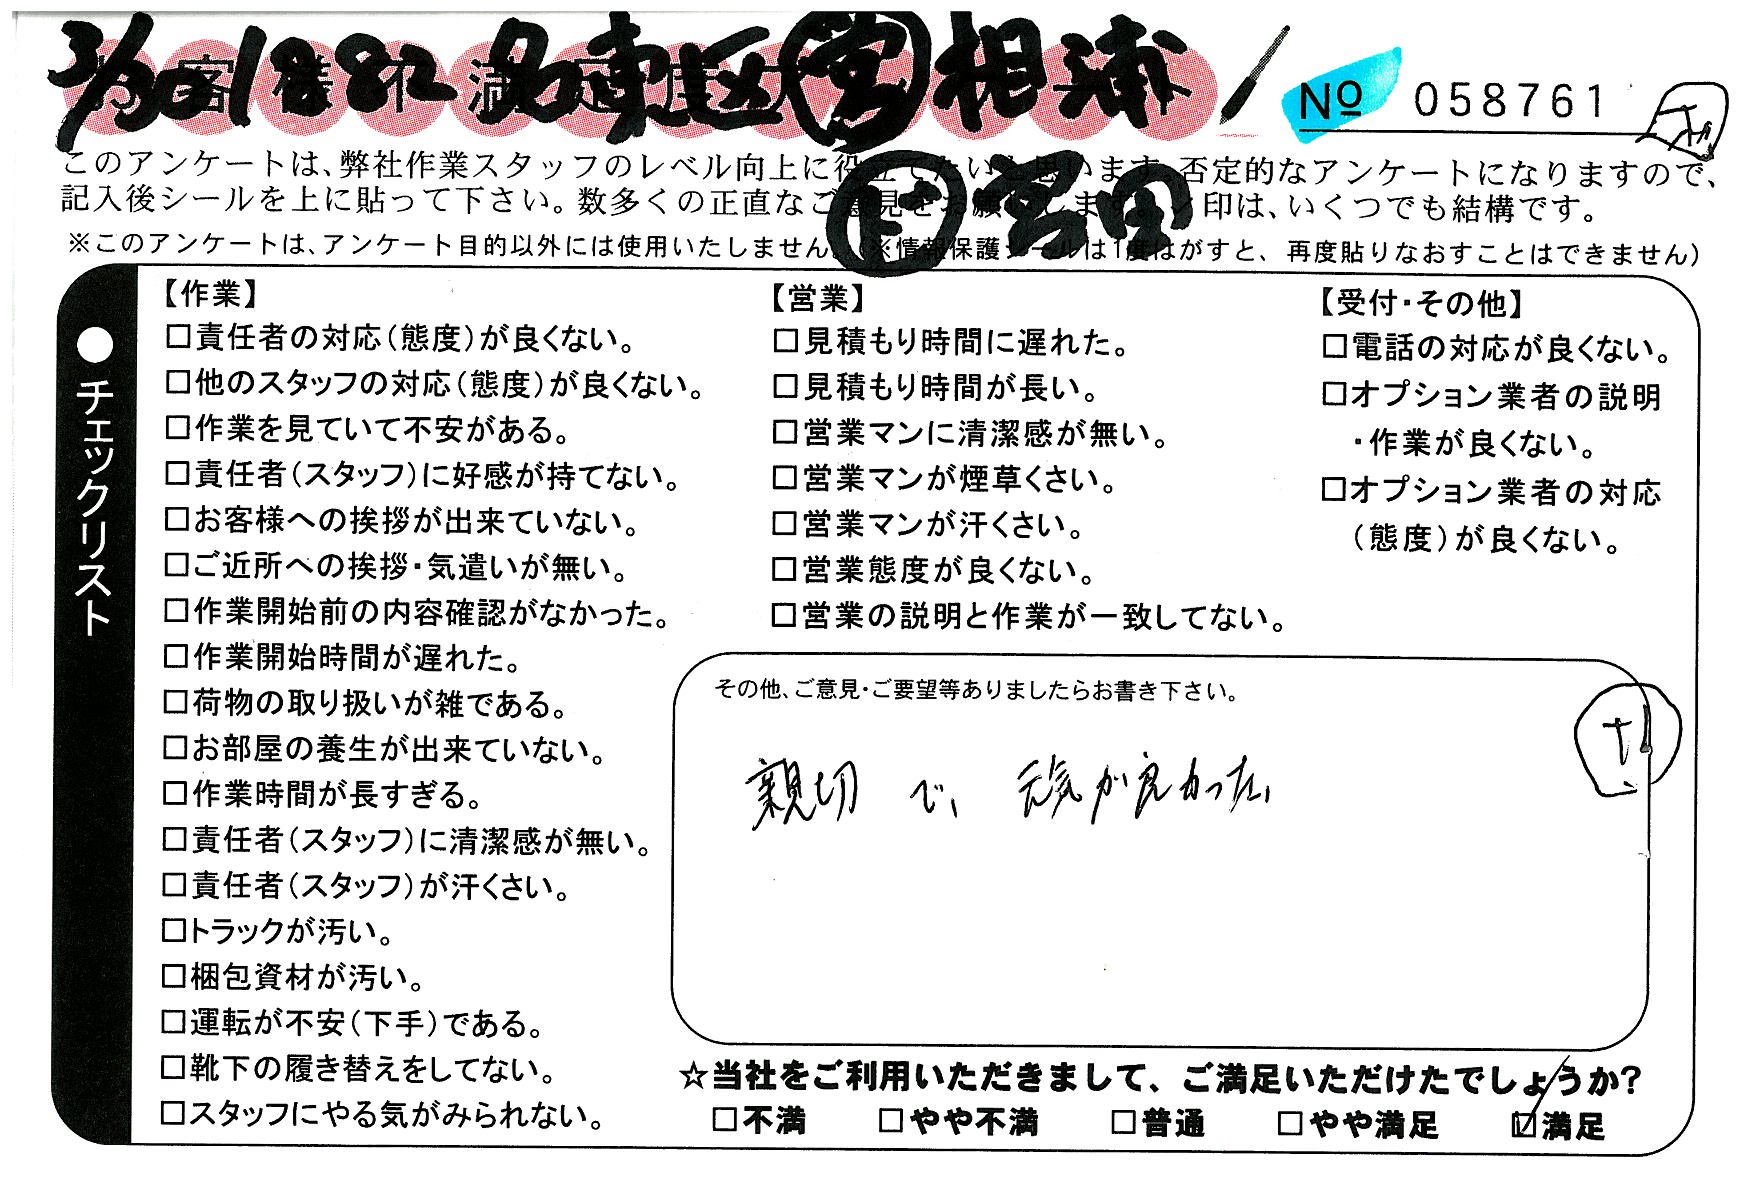 名東区 営 相浦
お客様不満足度アンケート
№ 058761
このアンケートは、弊社作業スタッフのレベル向上に役立てたいと思います。否定的なアンケートになりますので、
記入後シールを上に貼って下さい。数多くの正直なご意見をお願いします。✓印は、いくつでも結構です。
※このアンケートは、アンケート目的以外には使用いたしません。(※情報保護シールは1度はがすと、再度貼りなおすことはできません)
●チェックリスト
【作業】
□責任者の対応(態度)が良くない。
□他のスタッフの対応(態度)が良くない。
□作業を見ていて不安がある。
□責任者(スタッフ)に好感が持てない。
□お客様への挨拶が出来ていない。
□ご近所への挨拶・気遣いが無い。
□作業開始前の内容確認がなかった。
□作業開始時間が遅れた。
□荷物の取り扱いが雑である。
□お部屋の養生が出来ていない。
□作業時間が長すぎる。
□責任者(スタッフ)に清潔感が無い。
□責任者(スタッフ)が汗くさい。
□トラックが汚い。
□梱包資材が汚い。
□運転が不安(下手)である。
□靴下の履き替えをしてない。
□スタッフにやる気がみられない。
【営業】
□見積もり時間に遅れた。
□見積もり時間が長い。
□営業マンに清潔感が無い。
□営業マンが煙草くさい。
□営業マンが汗くさい。
□営業態度が良くない。
□営業の説明と作業が一致してない。
【受付・その他】
□電話の対応が良くない。
□オプション業者の説明
・作業が良くない。
□オプション業者の対応
(態度)が良くない。
その他、ご意見・ご要望等ありましたらお書き下さい。
親切で、元気が良かった。
☆当社をご利用いただきまして、ご満足いただけたでしょうか?
□不満 □やや不満 □普通 □やや満足 ☑満足